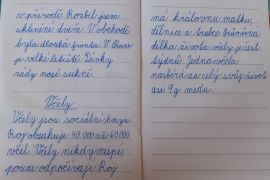 v přírodě. Rozbil jsem
skleněné dveře. V obchodě
byla dlouhá fronta. V Praze
je velké letiště. Dívky
rády nosí sukně.
Včely
Včely jsou sociální hmyz.
Roj obsahuje 40 000 až 60 000
včel. Včely nikdy nespí,
pouze odpočívají. Roj
má královnu matku,
dělnice a trubce. Průměrná
délka života včely je šest
týdnů. Jedna včela
nasbírá za celý svůj život
asi 9 g medu.